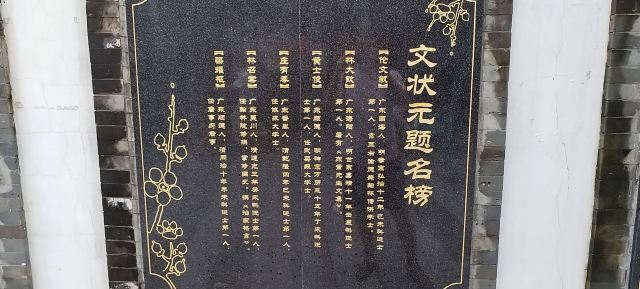 文状元题名榜
【伦文叙】
广东南海人，明孝宗弘治十二年己未科进士
第一人，官至右谕德兼翰林侍讲学士。
【林大钦】
广东海阳人，明世宗嘉靖十一年壬辰科进士
第一人，著有《东莆先生文集》。
【黄士俊】
广东顺德人，明神宗万历三十五年丁未科进
士第一人，任武英殿大学士
【庄有恭】
广东番禺人，清乾隆四年己未科进士第一人，
任协办大学士
【林召棠】
广东吴川人，清道光三年癸未科进士第一人，
任翰林院修撰，掌修国史，撰《治家格言》。
【梁耀枢】
广东顺德人，清同治十年辛未科进士第一人，
任詹事府詹事。